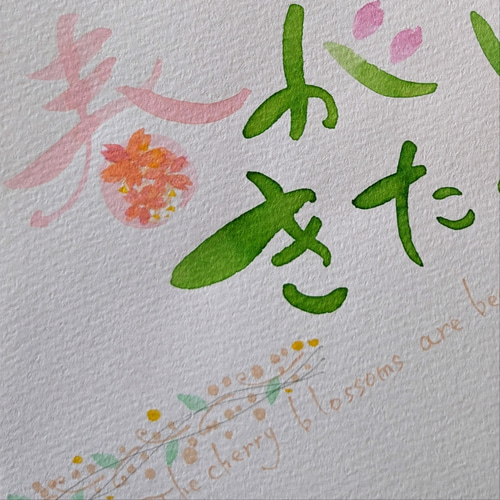 春が
きた
The cherry blossoms are be